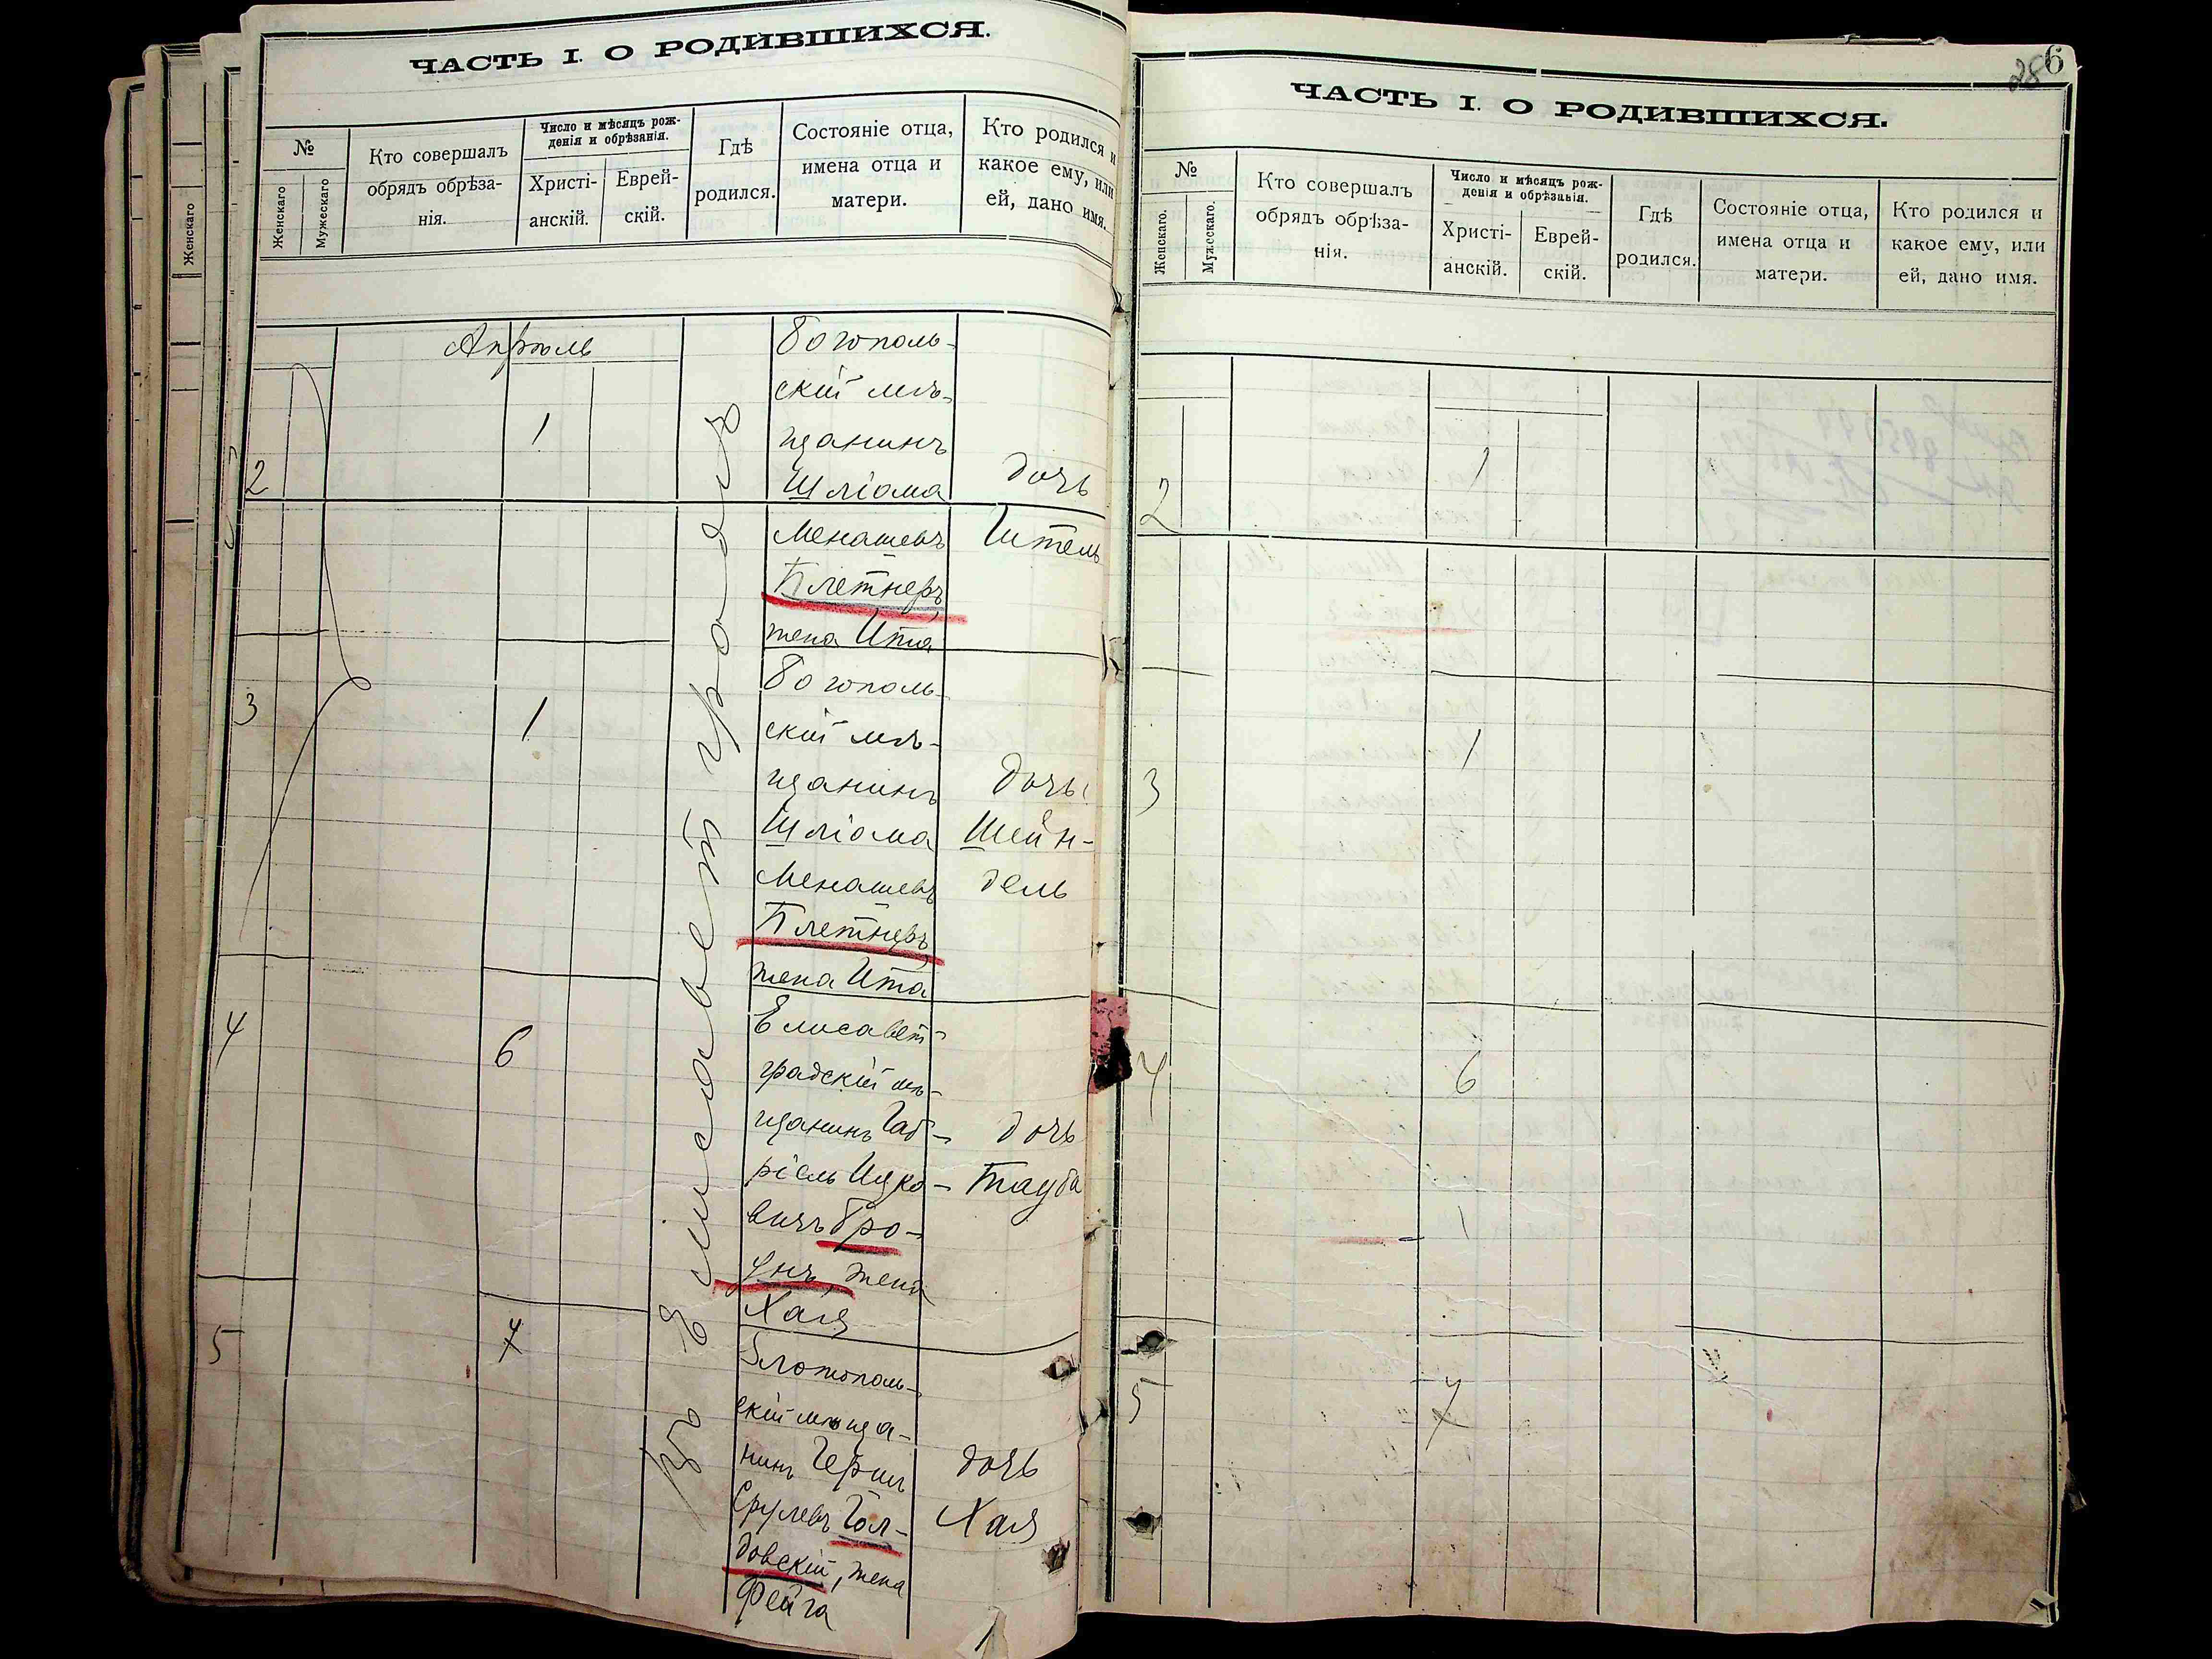 ЧАСТЬ I. О РОДИВШИХСЯ.
№
Женскаго
Мужескаго
Кто совершалъ
обрядъ обрѣза-
нія.
Число и мѣсяцъ рож-
денія и обрѣзанія.
Христі-
анскій.
Еврей-
скій.
Гдѣ
родился.
Состояніе отца,
имена отца и
матери.
Кто родился и
какое ему, или
ей, дано имя.
Апрѣль
въ Елисаветградѣ
2
1
Богополь-
скій мѣ-
щанинъ
Шліома
Менашевъ
Плетнеръ,
жена Ита
дочь
Гитель
3
1
Богополь-
скій мѣ-
щанинъ
Шліома
Менашевъ
Плетнеръ,
жена Ита
дочь
Шейн-
дель
4
6
Елисавет-
градскій мѣ-
щанинъ Габ-
ріель Ицко-
вичъ Бро-
унъ, жена
Хая
дочь
Тауба
5
7
Златополь-
скій мѣща-
нинъ Герш
Срулевъ Гол-
довскій, жена
Фейга
дочь
Хая
Женскаго
6
28
ЧАСТЬ I. О РОДИВШИХСЯ.
№
Женскаго.
Мужескаго.
Кто совершалъ
обрядъ обрѣза-
нія.
Число и мѣсяцъ рож-
денія и обрѣзанія.
Христі-
анскій.
Еврей-
скій.
Гдѣ
родился.
Состояніе отца,
имена отца и
матери.
Кто родился и
какое ему, или
ей, дано имя.
2
1
3
1
4
6
5
7